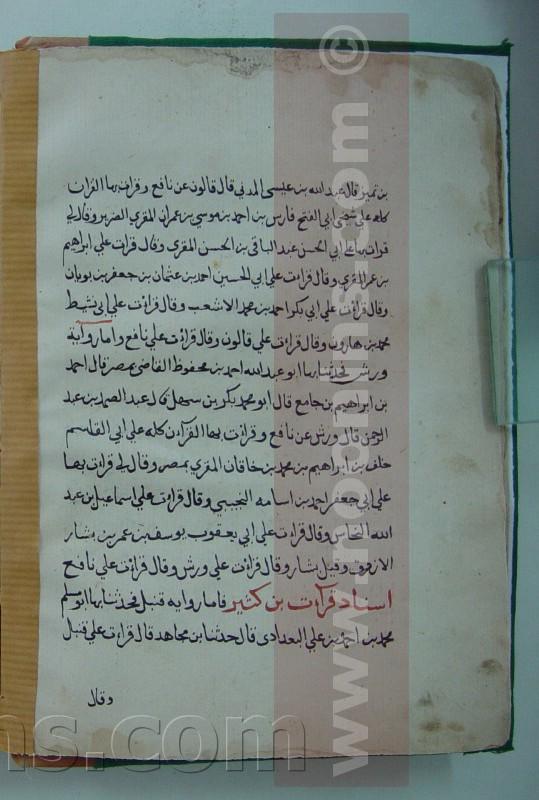 بن تميز قال عبد الله بن عيسى المدني قال قالون عن نافع وقرات بها القران
كله على شخي ابي الفتح فارس بن احمد بن موسي بن عمران المقري الضرير وقال لي
قرات بها على ابي الحسن عبد الباقي بن الحسن المقري وقال قرات علي ابراهيم
بن عمر المقري وقال قراءت علي ابي الحسين احمد بن عثمان بن جعفر بن بويان
وقال قراءت علي ابي بكر احمد بن محمد الاشعب وقال قراءت علي ابي نشيط
محمد بن هارون وقال قراءت علي قالون وقال قراءت علي نافع واما رواية
ورش فحدثنا بها ابو عبد الله احمد بن محفوظ القاضي بمصر قال احمد
بن ابراهيم بن جامع قال ابو محمد بكر بن سهل قال عبد الصمد بن عبد
الرحمن قال ورش عن نافع وقراءت بها القرآن كله علي ابي القاسم
خلف بن ابراهيم بن محمد بن خاقان المقري بمصر وقال لي قراءت بها
علي ابي جعفر احمد بن اسامه التجيبي وقال قراءت علي اسماعيل بن عبد
الله النحاس وقال قراءت علي ابي يعقوب يوسف بن عمر بن بشار
الازرق وقيل بشار وقال قراءت علي ورش وقال قراءت علي نافع
اسناد قرآءت بن كثير فاما روايه قنبل فحدثنا بها ابو مسلم
محمد بن احمد بن علي البغدادي قال حدثنا بن مجاهد قال قراءت علي قنبل
وقال
www.noorlins.com ©
ns.com